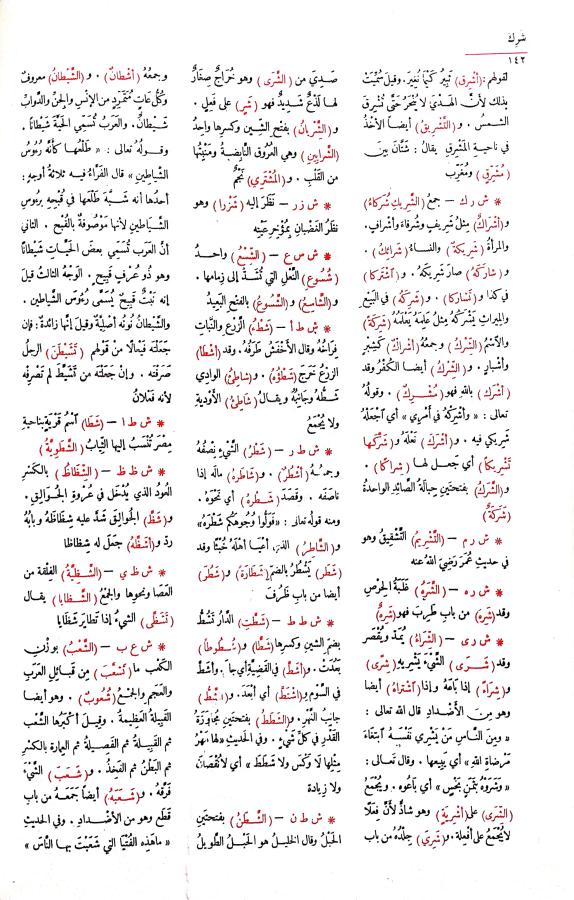 شرك
١٤٢
لقولهم: (أَشْرِق) ثَبِيرُ كَيْمَا نُغِيرَ. وقيلَ سُمِّيَتْ
بذلك لأَنَّ الهَدْيَ لا يُنْحَرُ حَتَّى تُشْرِقَ
الشمسُ. و (التَّشْرِيقُ) أيضا الأَخْذُ
فى ناحيةِ المَشْرِقِ يقالُ: شَتَّانَ بينَ
(مُشَرِّقٍ) ومُغَرِّبٍ
* ش ر ك – جمعُ (الشَّرِيكِ شُرَكاءُ)
و (أَشْرَاكٌ) مثلُ شَرِيفٍ وشُرَفاءَ وأَشْرافٍ.
والمرأةُ (شَرِيكَةٌ) والنساءُ (شَرائكُ).
و (شارَكَهُ) صار شَرِيكَهُ. و (اشْتَركا)
فى كذا و (تَشَارَكا). و (شَرِكَهُ) فى البَيْعِ
والميراثِ يَشْرَكُهُ مِثلُ عَلِمَهُ يَعْلَمُهُ (شَرِكةً)
والاسمُ (الشِّرْكُ) وجمعُهُ (أَشْراكٌ) كَشِبْرٍ
وأَشْبارٍ. و (الشِّرْكُ) أيضا الكُفْرُ وقد
(أشْرَكَ) باللهِ فهو (مُشْرِكٌ). وقولُهُ
تعالى: « وأَشْرِكْهُ فى أَمْرِي » أى اجْعَلْهُ
شَرِيكى فيه. و (أَشْرَكَ) نَعْلَهُ و (شَرَّكَها
تَشْرِيكًا) أى جَعلَ لها (شِراكًا).
و (الشَّرَكُ) بفتحتين حِبالَةُ الصَّائدِ الواحدةُ
(شَرَكَةٌ)
* ش ر م – (التَّشْرِيمُ) التَّشْقِيقُ وهو
فى حديثِ عُمَرَ رَضِىَ اللهُ عنه
* ش ر ه – (الشَّرَهُ) غَلَبَةُ الحِرْصِ
وقد (شَرِهَ) من بابِ طَرِبَ فهو (شَرِهٌ)
* ش ر ى – (الشِّراءُ) يُمَدُّ ويُقْصَر
وقد (شَرَى) الشَّىْءَ يَشْرِيهِ (شِرًى)
و (شِرَاءً) إذا باعَهُ وإذا (اشْتَراهُ) أيضا
وهو مِنَ الأَضْدادِ قال اللهُ تعالى:
« ومِنَ النَّاسِ مَنْ يَشْرِى نَفْسَهُ ابْتِغاءَ
مَرْضاةِ اللهِ » أى يبيعها. وقال تعالى:
« وشَرَوْهُ بِثَمَنٍ بَخْسٍ » أى باعُوه. ويُجْمَعُ
(الشِّرَى) على (أَشْرِيَةٍ) وهو شاذٌّ لأنَّ فِعَلًا
لا يُجْمَعُ على أَفْعِلَة. و (شَرِىَ) جِلْدُهُ من باب
صَدِىَ من (الشَّرَى) وهو خُرَاجٌ صِغَارٌ
لها لَذْعٌ شديدٌ فهو (شَرٍ) على فَعِلٍ.
و (الشَّرْيانُ) بفتح الشين وكسرها واحدُ
(الشَّرايين) وهى العُرُوقُ النَّابِضَةُ ومَنْبِتُها
من القَلْبِ. و (المُشْتَرِى) نَجْمٌ
* ش ز ر – نَظَرَ إليه (شَزْرًا) وهو
نَظَرُ الغَضْبانِ بِمُؤْخِرِ عَيْنِه
* ش س ع – (الشِّسْعُ) واحدُ
(شُسُوعِ) النَّعْلِ التى تُشَدُّ إلى زِمامِها.
و (الشَّاسِعُ) و (الشَّسُوعُ) بالفتحِ البَعِيدُ
* ش ط أ – (شَطْءُ) الزَّرْعِ والنَّباتِ
فِراخُهُ وقال الأَخْفَشُ طَرَفُهُ. وقد (أَشْطأَ)
الزرعُ خرَجَ (شَطْؤُهُ). و (شاطِئُ) الوادِى
شَطُّهُ وجانِبُهُ ويقالُ (شاطِئُ) الأَوْدِيَةِ
ولا يُجْمَعُ
* ش ط ر – (شَطْرُ) الشَّىْءِ نِصْفُهُ
وجمعُهُ (أَشْطُرٌ). و (شاطَرَهُ) مالَهُ إذا
ناصَفَه. وقصَدَ (شَطْرَهُ) أى نَحْوَهُ.
ومنه قولُه تعالى: « فَوَلُّوا وُجُوهَكُمْ شَطْرَهُ »
و (الشَّاطِرُ) الذى أعْيا أهلَهُ خُبْثًا وقد
(شَطَرَ) يَشْطُرُ بالضم (شَطَارَةً) و (شَطُرَ)
أيضا من باب ظَرُفَ
* ش ط ط – (شَطَّتِ) الدَّارُ تَشُطُّ
بضم الشين وكسرِها (شَطًّا) و (شُطُوطًا)
بَعُدَتْ. و (أَشَطَّ) فى القَضِيَّةِ أى جارَ. وأَشَطَّ
فى السَّوْمِ و (اشْتَطَّ) أى أَبْعَدَ. و (الشَّطُّ)
جانبُ النَّهْرِ. و (الشَّطَطُ) بفتحتين مُجاوَزَةُ
القَدْرِ فى كلِّ شَىْءٍ. وفى الحديثِ « لها مَهْرُ
مِثْلِها لا وَكْسَ ولا شَطَطَ » أى لا نُقْصانَ
ولا زِيادةَ
* ش ط ن – (الشَّطَنُ) بفتحتين
الحَبْلُ وقال الخليلُ هو الحَبْلُ الطَّوِيلُ
وجمعُهُ (أَشْطانٌ). و (الشَّيْطانُ) معروفٌ
وكُلُّ عاتٍ مُتَمَرِّدٍ من الإنْسِ والجنِّ والدَّوابِّ
شيطانٌ. والعربُ تُسَمِّى الحَيَّةَ شَيْطانًا.
وقولُهُ تعالى: « طَلْعُها كأنَّهُ رُءُوسُ
الشَّياطِينِ » قال الفَرَّاءُ فيه ثلاثةُ أوجهٍ:
أحدُها أنه شَبَّهَ طَلْعَها فى قُبْحِهِ بِرءُوسِ
الشَّياطينِ لأنها مَوْصُوفَةٌ بالقُبْحِ. الثانى
أنَّ العربَ تُسَمِّى بعضَ الحَيَّاتِ شَيْطانًا
وهو ذو عُرْفٍ قَبِيحٍ. الوَجْهُ الثالثُ قيلَ
إنه نَبْتٌ قبيحٌ يُسَمَّى رُءُوسَ الشياطين.
والشَّيْطانُ نُونُه أَصْلِيَّةٌ وقيلَ إنها زائدةٌ: فإن
جَعَلْتَه فَيْعالًا من قولهم (تَشَيْطَنَ) الرجلُ
صَرَفْتَه. وإن جعلْتَه من تَشَيَّطَ لم تَصْرِفْه
لأنه فَعْلانُ
* ش ط ا – (شَطَا) اسْمُ قَرْيَةٍ بناحيةِ
مِصْرَ تُنْسَبُ إليها الثِّيابُ (الشَّطَوِيَّةُ)
* ش ظ ظ – (الشِّظاظُ) بالكسْرِ
العُودُ الذى يُدْخَلُ فى عُرْوَةِ الجُوالِقِ.
و (شَظَّ) الجُوالِقَ شَدَّ عليه شِظاظَهُ وبابُهُ
ردّ و (أَشَظَّهُ) جعلَ له شِظاظا
* ش ظ ى – (الشَّظِيَّةُ) الفِلْقَةُ من
العَصا ونحوِها والجمعُ (الشَّظايا) يقال
(تَشَظَّى) الشىءُ إذا تَطايَرَ شَظَايا
* ش ع ب – (الشَّعْبُ) بوزْنِ
الكَعْبِ ما (تَشَعَّبَ) مِن قَبائلِ العَرَبِ
والعَجَمِ والجمعُ (شُعُوبٌ). وهو أيضا
القَبِيلَةُ العظيمةُ. وقيلَ أكبرُها الشَّعْبُ
ثم القَبِيلَةُ ثم الفَصِيلةُ ثم العِمارةُ بالكسْرِ
ثم البَطْنُ ثم الفَخِذُ. و (شَعَبَ) الشَّىْءَ
فَرَّقَهُ. و (شَعَبَهُ) أيضًا جَمَعَهُ من بابِ
قَطَع وهو من الأَضْداد. وفى الحديث
« ما هذِه الفُتْيا التى شَعَبْتَ بها النَّاسَ »